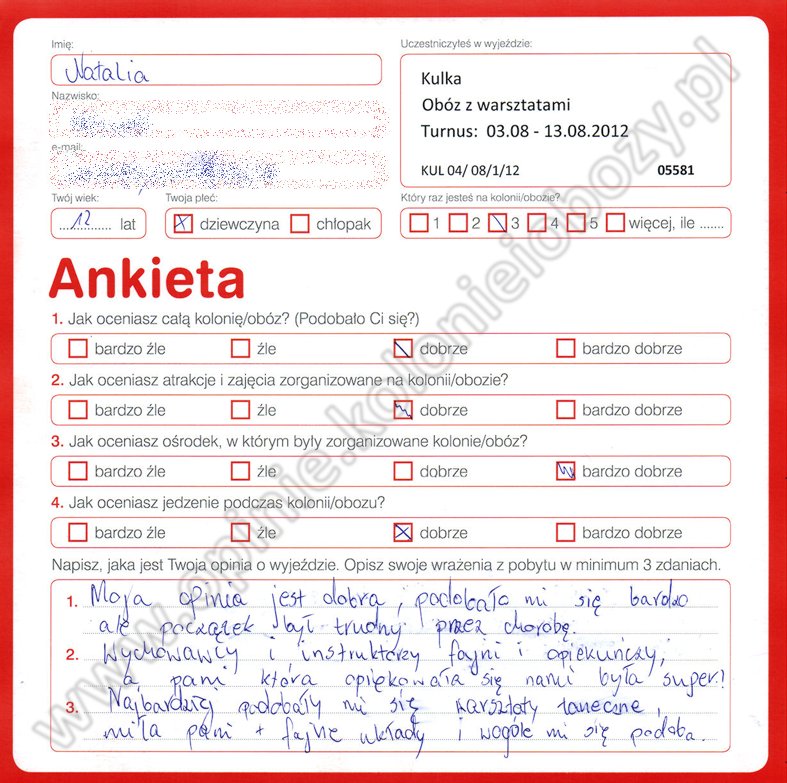 Imię:
Natalia
Nazwisko:
e-mail:
Twój wiek:
12 lat
Twoja płeć:
dziewczyna chłopak
Uczestniczyłeś w wyjeździe:
Kulka
Obóz z warsztatami
Turnus: 03.08 - 13.08.2012
KUL 04/ 08/1/12 05581
Który raz jesteś na kolonii/obozie?
1 2 3 4 5 więcej, ile .......
Ankieta
1. Jak oceniasz całą kolonię/obóz? (Podobało Ci się?)
bardzo źle źle dobrze bardzo dobrze
2. Jak oceniasz atrakcje i zajęcia zorganizowane na kolonii/obozie?
bardzo źle źle dobrze bardzo dobrze
3. Jak oceniasz ośrodek, w którym były zorganizowane kolonie/obóz?
bardzo źle źle dobrze bardzo dobrze
4. Jak oceniasz jedzenie podczas kolonii/obozu?
bardzo źle źle dobrze bardzo dobrze
Napisz, jaka jest Twoja opinia o wyjeździe. Opisz swoje wrażenia z pobytu w minimum 3 zdaniach.
1. Moja opinia jest dobra, podobało mi się bardzo
ale początek był trudny przez chorobę.
2. Wychowawcy i instruktorzy fajni i opiekuńczy,
a pani która opiekowała się nami była super!
3. Najbardziej podobały mi się warsztaty taneczne,
miła pani + fajne układy i wogóle mi się podoba.
www.opinie.kolonieiobozy.pl